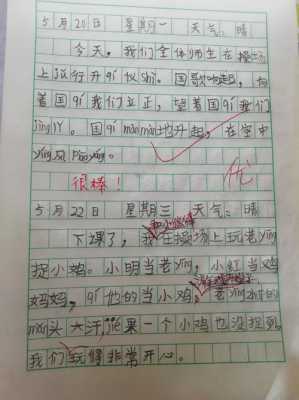 5月20日 星期一 天气：晴
今天，我们全体师生在操场
上jǔ行升qí仪shì。国歌响起，向
着国qí我们立正，望着国qí我们
jìng lǐ。国qí màn màn地升起，在空中
yíng风piāo yáng。
很棒！
优
5月22日 星期三 天气：晴
下课了，我在操场上玩老yīng
捉小鸡。小明当老yīng，小红当鸡
妈妈，qí他的当小鸡，老yīng zhuī的
mǎn头大汗jié果一个小鸡也没捉到。
我们玩得非常开心。